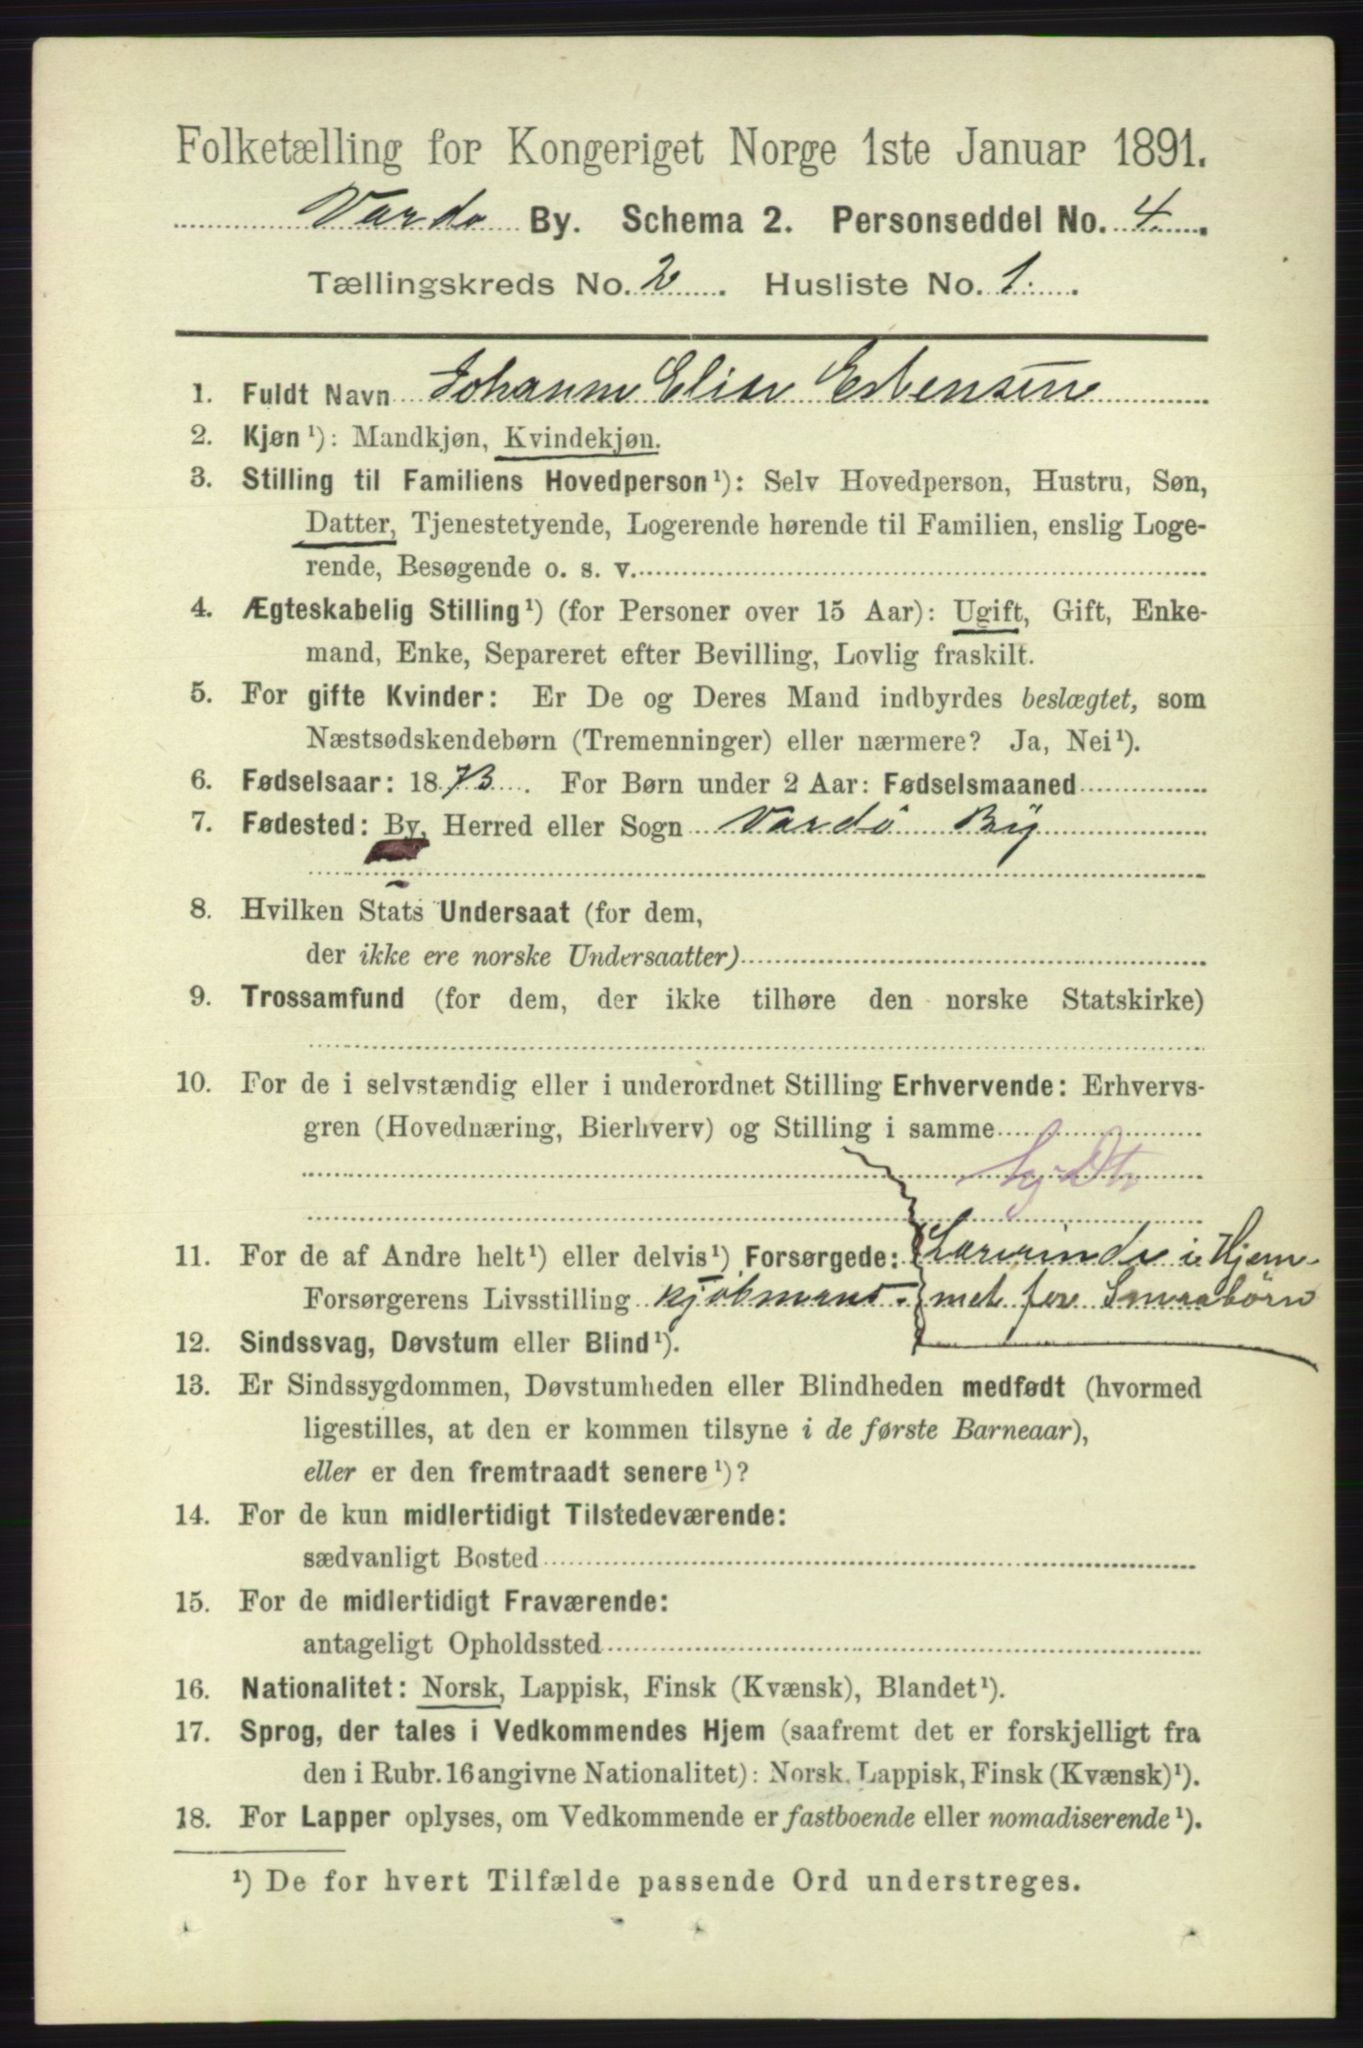 Folketælling for Kongeriget Norge 1ste Januar 1891.
Vardø By. Schema 2. Personseddel No. 4.
Tællingskreds No. 2. Husliste No. 1.
1. Fuldt Navn Johanne Elise Esbensen
2. Kjøn¹): Mandkjøn, Kvindekjøn.
3. Stilling til Familiens Hovedperson¹): Selv Hovedperson, Hustru, Søn,
Datter, Tjenestetyende, Logerende hørende til Familien, enslig Loge-
rende, Besøgende o. s. v.
4. Ægteskabelig Stilling¹) (for Personer over 15 Aar): Ugift, Gift, Enke-
mand, Enke, Separeret efter Bevilling, Lovlig fraskilt.
5. For gifte Kvinder: Er De og Deres Mand indbyrdes beslægtet, som
Næstsødskendebørn (Tremenninger) eller nærmere? Ja, Nei¹).
6. Fødselsaar: 1873. For Børn under 2 Aar: Fødselsmaaned
7. Fødested: By, Herred eller Sogn Vardö By
8. Hvilken Stats Undersaat (for dem,
der ikke ere norske Undersaatter)
9. Trossamfund (for dem, der ikke tilhøre den norske Statskirke)
10. For de i selvstændig eller i underordnet Stilling Erhvervende: Erhvervs-
gren (Hovednæring, Bierhverv) og Stilling i samme
11. For de af Andre helt¹) eller delvis¹) Forsørgede: Lærerinde i Hjem-
Forsørgerens Livsstilling kjöbmand. met for Smaabörn
12. Sindssvag, Døvstum eller Blind¹).
13. Er Sindssygdommen, Døvstumheden eller Blindheden medfødt (hvormed
ligestilles, at den er kommen tilsyne i de første Barneaar),
eller er den fremtraadt senere¹)?
14. For de kun midlertidigt Tilstedeværende:
sædvanligt Bosted
15. For de midlertidigt Fraværende:
antageligt Opholdssted
16. Nationalitet: Norsk, Lappisk, Finsk (Kvænsk), Blandet¹).
17. Sprog, der tales i Vedkommendes Hjem (saafremt det er forskjelligt fra
den i Rubr. 16 angivne Nationalitet): Norsk, Lappisk, Finsk (Kvænsk)¹).
18. For Lapper oplyses, om Vedkommende er fastboende eller nomadiserende¹).
¹) De for hvert Tilfælde passende Ord understreges.